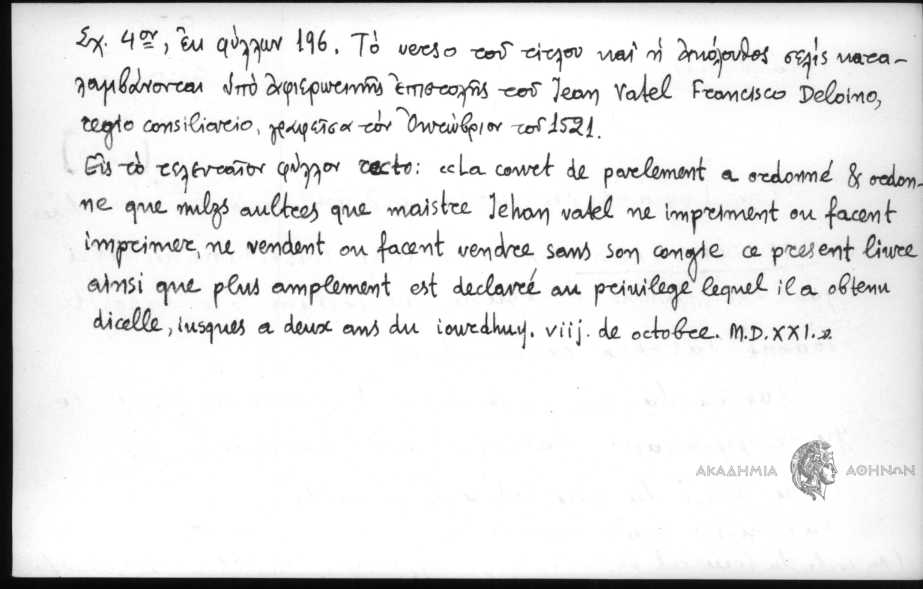 Σχ. 4ον, ἐκ φύλλων 196. Τὸ verso τοῦ τίτλου καὶ ἡ ἀκόλουθος σελὶς κατα-
λαμβάνονται ὑπὸ ἀφιερωτικῆς ἐπιστολῆς τοῦ Jean Vatel Francisco Deloino,
regio consiliario, γραφεῖσα τὸν Ὀκτώβριον τοῦ 1521.
Εἰς τὸ τελευταῖον φύλλον recto: «La court de parlement a ordonné & ordon-
ne que nulzs aultres que maistre Jehan vatel ne impriment ou facent
imprimer, ne vendent ou facent vendre sans son congie ce present liure
ainsi que plus amplement est declaré au priuilege lequel il a obtenu
dicelle, iusques a deux ans du iourdhuy. viij. de octobre. M.D.XXI.»
ΑΚΑΔΗΜΙΑ ΑΘΗΝΩΝ